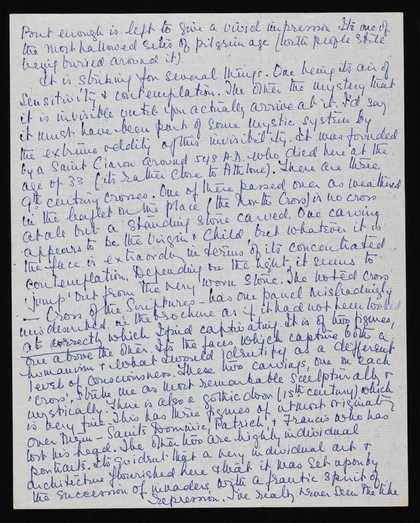 but enough is left to give a vivid impression. Its one of
the most hallowed sites of pilgrimage (with people still
being buried around it).
It is striking for several things. One being its air of
sensitivity & contemplation. The other the mystery that
it is invisible until you actually arrive at it. I'd say
it must have been part of some mystic system by
the extreme oddity of this invisibility. It was founded
by a Saint Ciaron around 548 A.D. who died here at the
age of 33. (its rather close to Athlone). There are three
9th century crosses. One of these passed over as weathered
in the leaflet on the place (the North Cross) is no cross
at all but a standing stone carved. One carving
appears to be the Virgin & Child but whatever it is
the face is extraordin in terms of its concentrated
contemplation. Depending on the light, it seems to
'jump' out from the very worn stone. The noted cross
— Cross of the Scriptures — has one panel misleadingly
misdescribed in the brochure as if it had not been looked
at correctly which I find captivating. It is of two figures,
one above the other. Its the faces which capture both a
humanism & what I would identify as a different
level of consciousness. These two carvings, one on each
'cross', strike me as most remarkable sculpturally &
mystically. There is also a gothic door (15th century) which
is very fine. This has three figures of utmost originality
over them — Saints Dominic, Patrick & Francis who has
lost his head. The other two are highly individual
portraits. Its evident that a very individual art &
architecture flourished here & that it was set upon by
the succession of invaders with a frantic spirit of
repression. I've really never seen the like